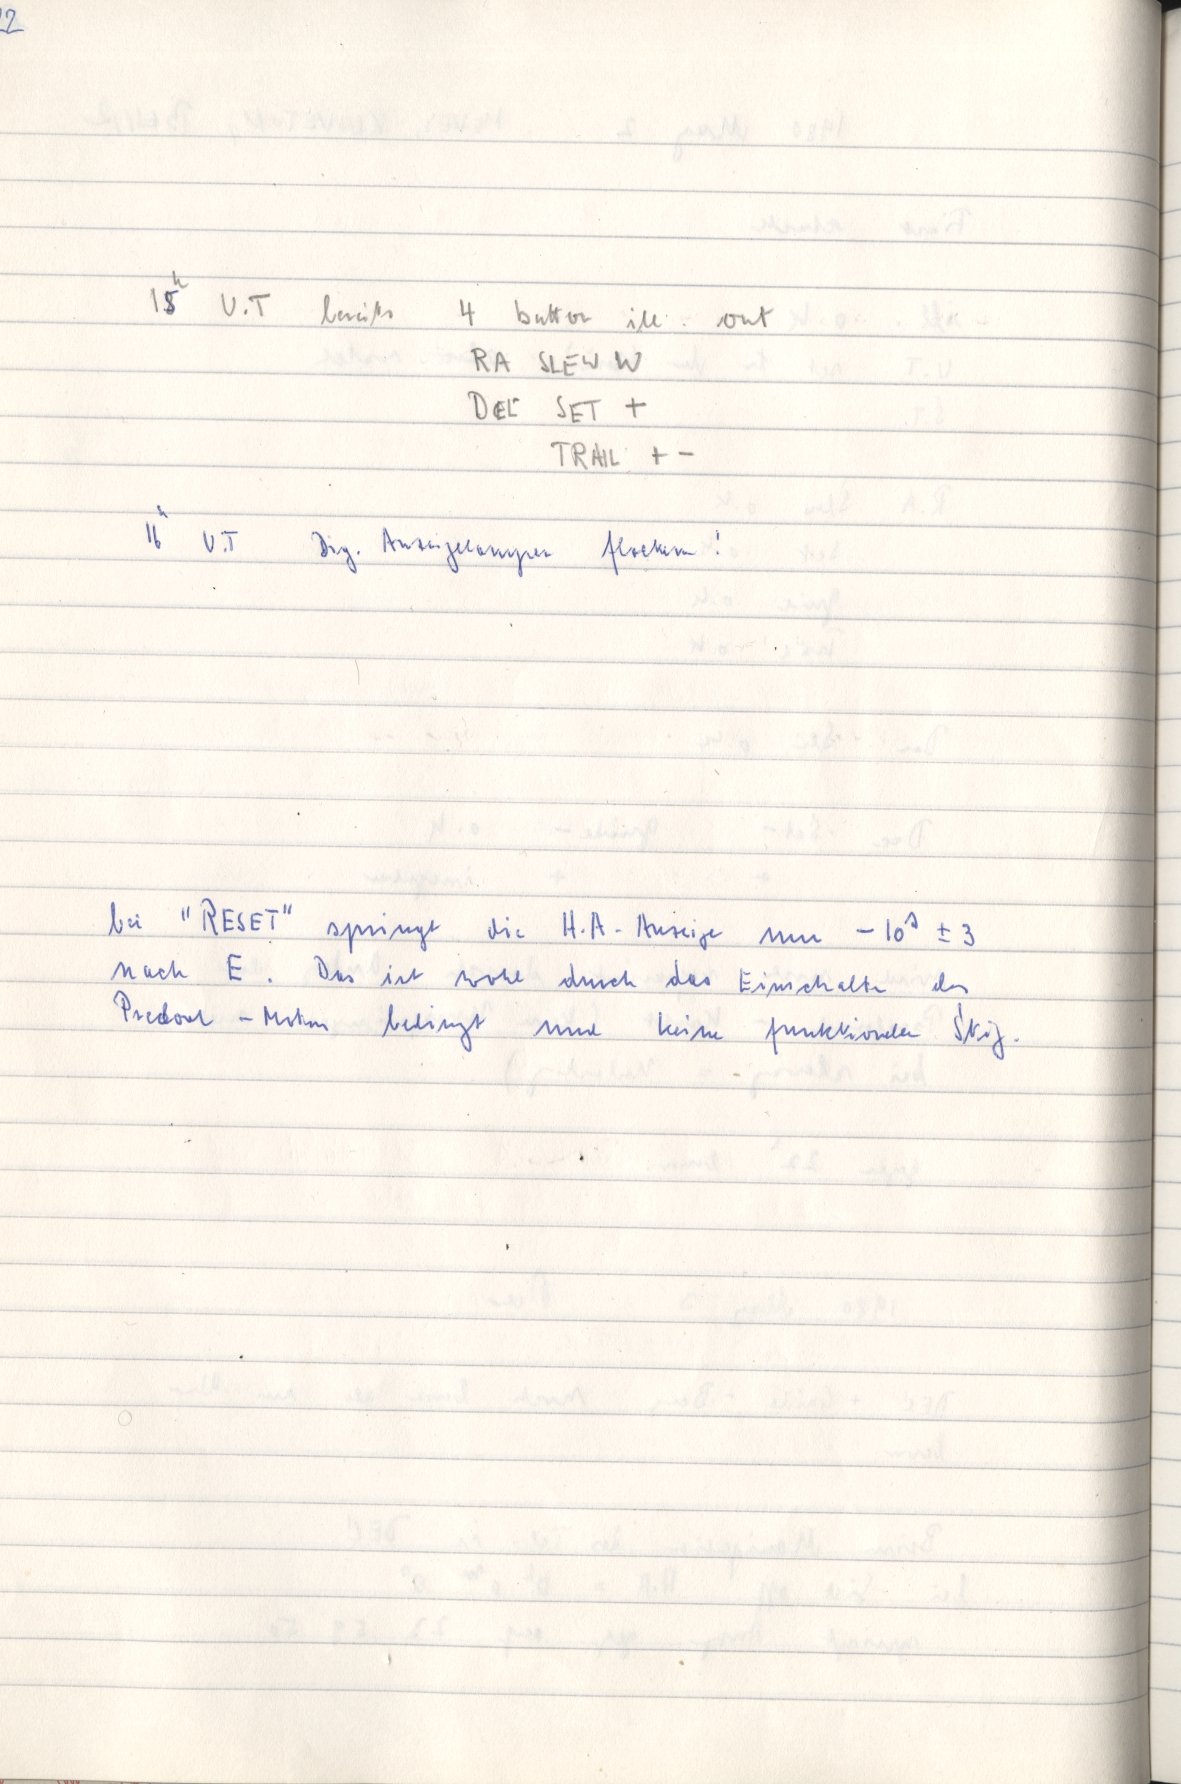 22
15h U.T bereits 4 button ill. out
RA SLEW W
DEC SET +
TRAIL + -
16h U.T Dig. Anzeigelampen flackern!
bei "RESET" springt die H.A-Anzeige nur -10s ± 3
nach E. Das ist wohl durch das Einschalten des
- Motors bedingt und keine